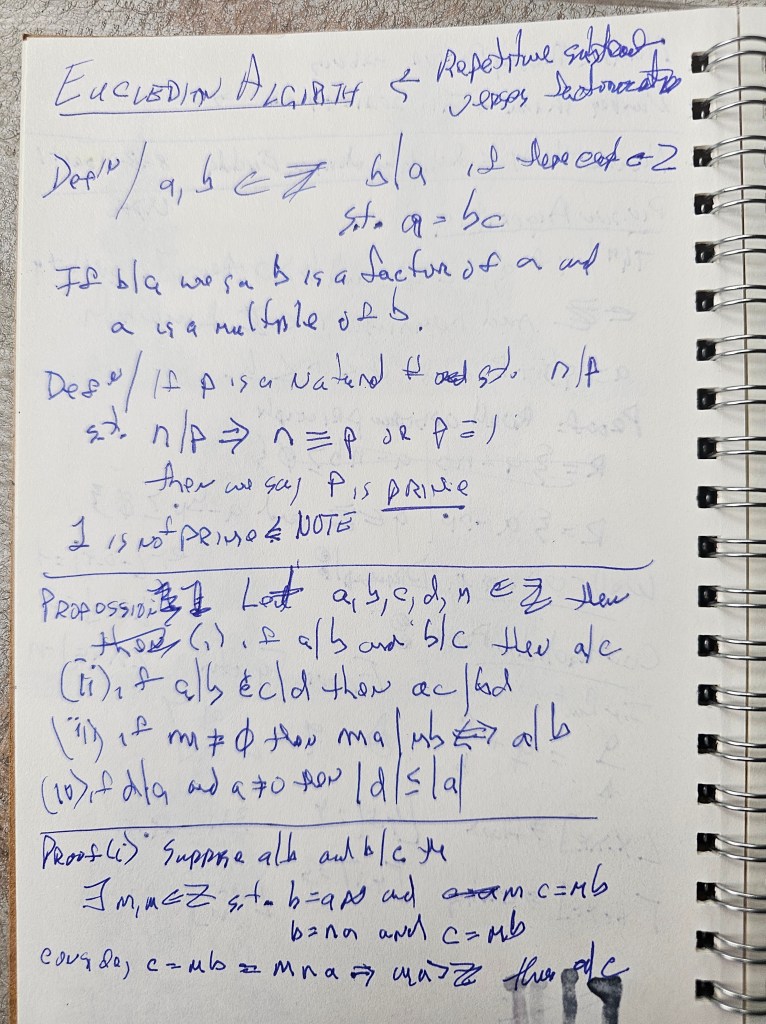 EUCLEDIAN ALGIRTH ← Repetitive subtract
verses factorization
Defⁿ/ a, b ∈ ℤ b|a if there exist c ∈ Z
s.t. a = bc
If b|a we say b is a factor of a and
a is a multiple of b.
Defⁿ/ If p is a Natural # s.t. n|p
s.t. n|p ⇒ n = p or p = 1
then we say p is PRIME
1 is not PRIME ← NOTE
PROPOSSION 1 Let a, b, c, d, n ∈ ℤ then
(i) if a|b and b|c then a|c
(ii) if a|b & c|d then ac|bd
(iii) if m ≠ 0 then ma|mb ⇔ a|b
(iv) if d|a and a≠0 then |d| ≤ |a|
Proof (i) Suppose a|b and b|c the
∃ m, n ∈ ℤ s.t. b = an and c = mb
b = na and c = mb
c = mb = mna ⇒ ℤ thus a|c